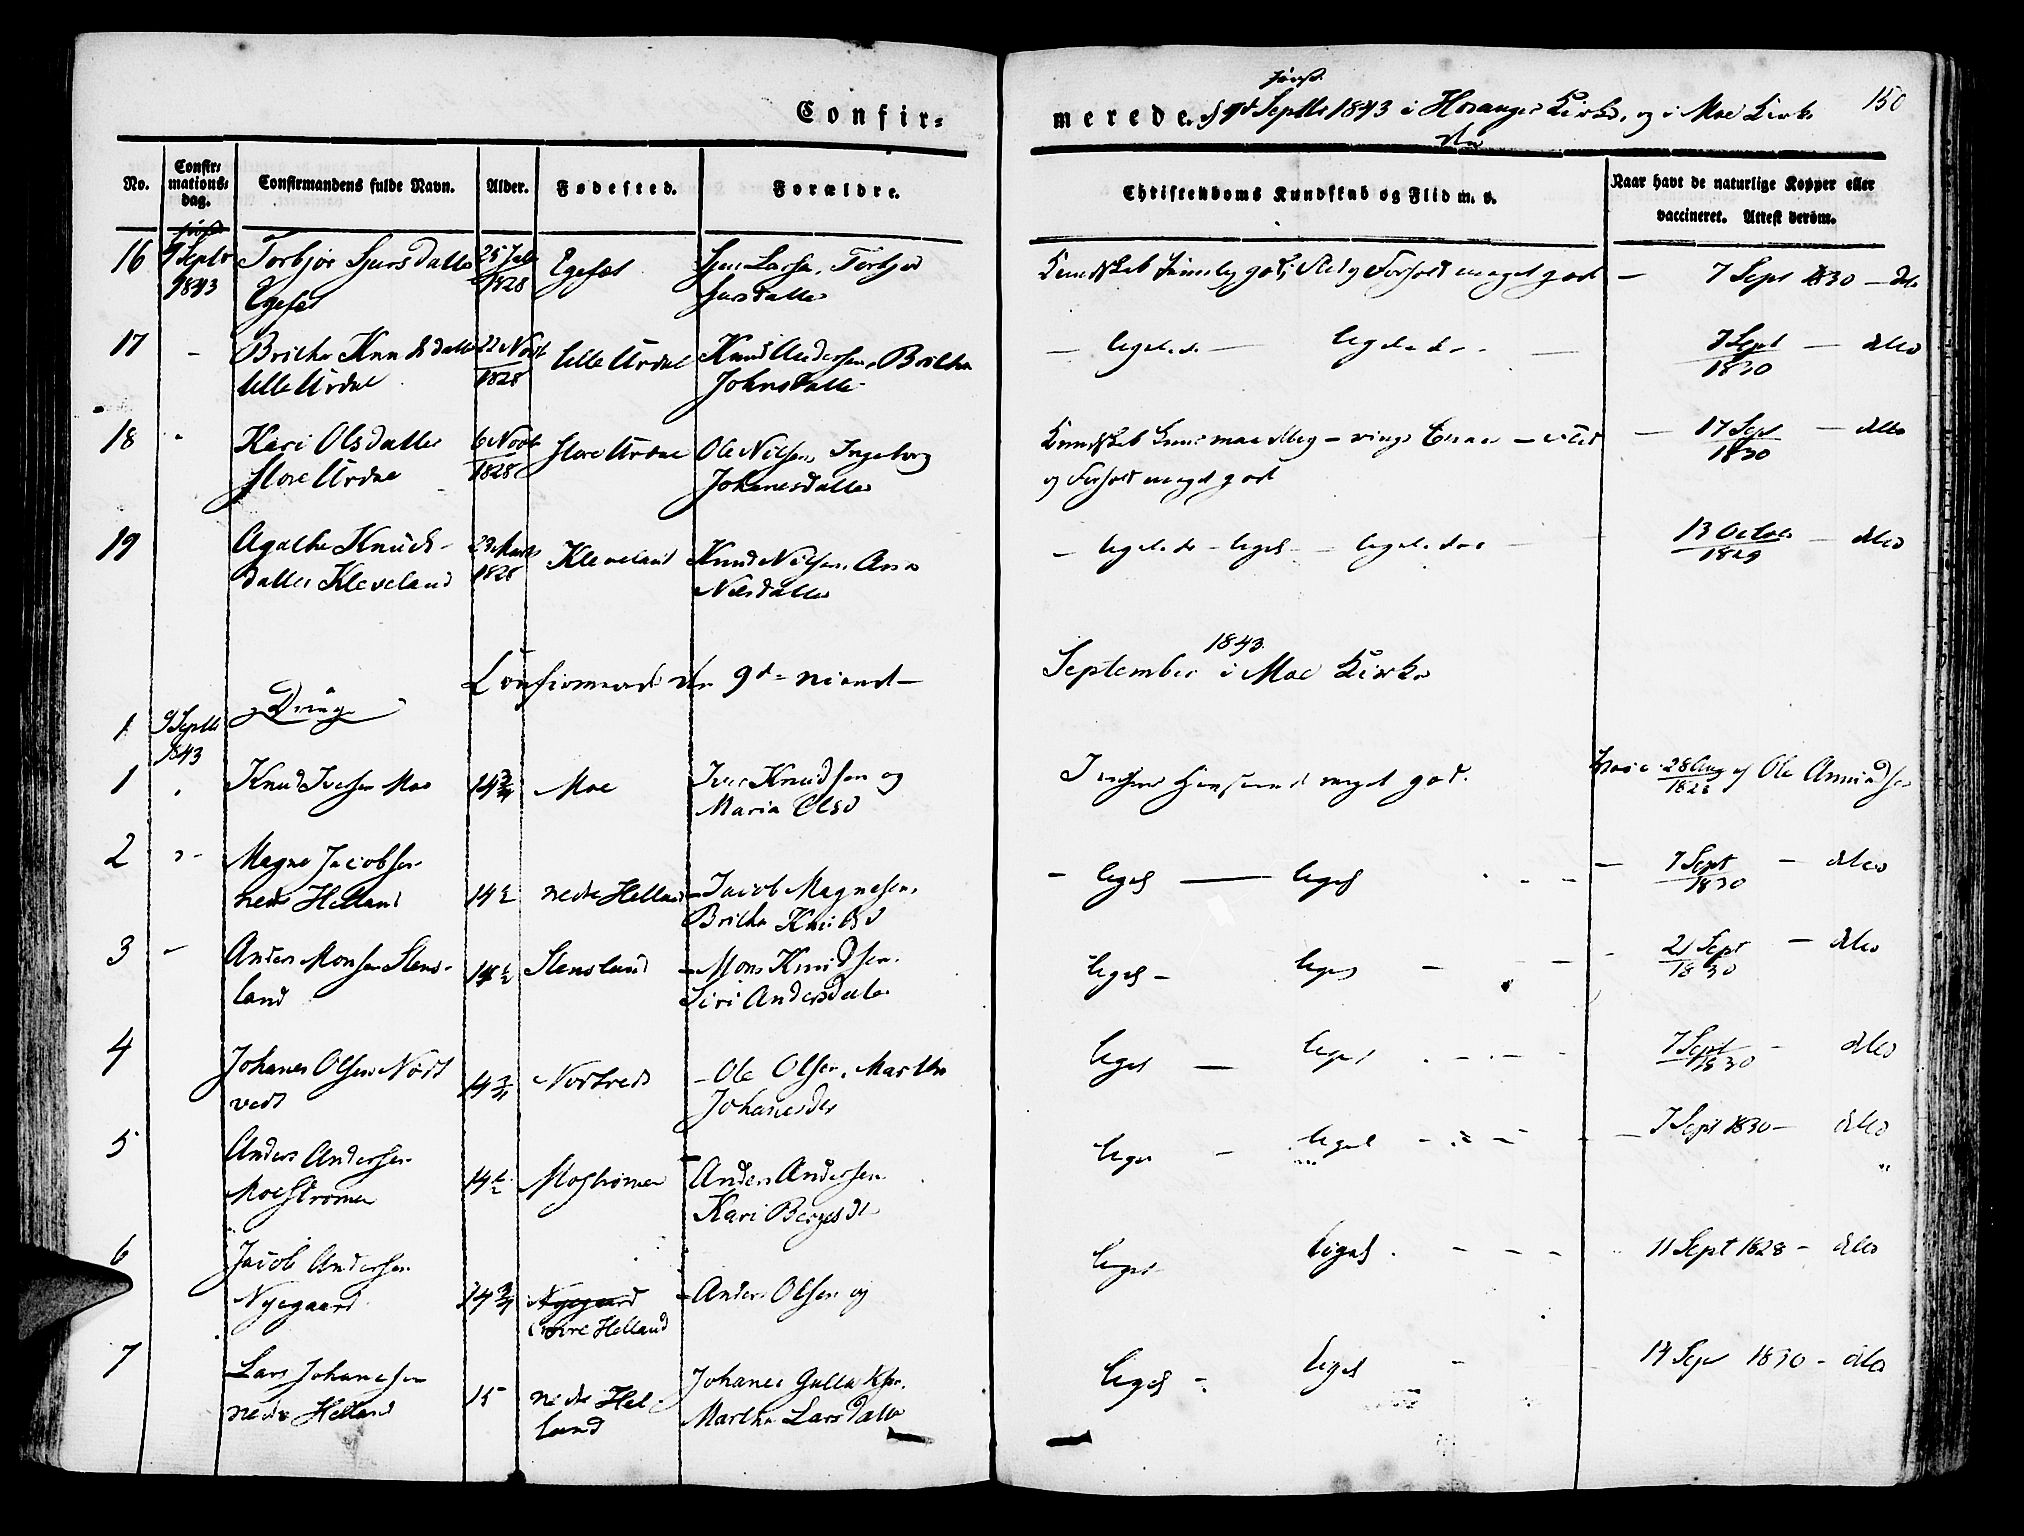 Confir=
merede 9de Septbr 1843 i Hosanger Kirke, og i Moe Kirke
150
No.
Confir-
mations-
dag.
Confirmandens fulde Navn.
Alder.
Fødested.
Forældre.
Christendoms Kundskab og Flid m. v.
Naar havt de naturlige Kopper eller
vaccineret. Attest derom.
16 Septbr 1843
Torbjør Sjursdatter
Egeset
25 Jul 1828
Egeset
Larsen, Torbjør
Sjursdatter
Kundskab god, Flid og Forhold meget god
7 Sept 1830 — dto
17 - Britha Knudsdatter
lille Urdal
22 Novb 1828
lille Urdal
Knud Andersen, Britha
Johnsdatter
— ligeledes — ligeledes —
7 Sept 1830 — dto
18 Kari Olsdatter
store Urdal
6 Novb 1828
store Urdal
Ole Nilsen, Ingeborg
Johanesdatter
Kundskab maadelig — ringe Evner — Flid
og Forhold meget god
17 Sept 1830 — dto
19 Agathe Knuds-
datter Kleveland
23 Marts 1828
Kleveland
Knud Nilsen, Ana
Nilsdatter
— ligeledes — liges — ligeledes
13 Octob 1829 — dto
Confirmerede den 9de
September 1843 i Moe Kirke
Drenge
1 9 Septbr 1843
1 Knud Iversen Moe
14 3/4
Moe
Iver Knudsen og
Maria Olsd
meget god.
Vacc. 28 Aug 1828 af Ole Amundsen
2 Magne Jacobsen
nedre Helland
14 1/2
nedre Helland
Jacob Magnesen,
Britha Knudsd
- liges — liges
7 Sept 1830 — dto
3 Anders Monsen Stens-
land
14 1/2
Stensland
Mons Knudsen.
Siri Andersdatter
liges — liges —
21 Sept 1830 — dto
4 Johanes Olsen Nord
vedt
14 3/4
Nortvedt
Ole Olsen, Martha
Johanesdtr
liges — liges
7 Sept 1830 - dto
5 Anders Andersen
Moestrømen
14 1/2
Mostrømen
Anders Andersen
Kari Bergesdtr
liges — liges
7 Sept 1830 — dto
6 Jacob Andersen
Nyegaard
14 3/4
Nyegaard
øvre Helland
Anders Olsen og
liges liges
11 Sept 1828 — dto
7 Lars Johanesen
nedre Helland
15
nedre Hel-
land
Johanes Gullaksen.
Martha Larsdatter
liges - liges
14 Sept 1830 - dto